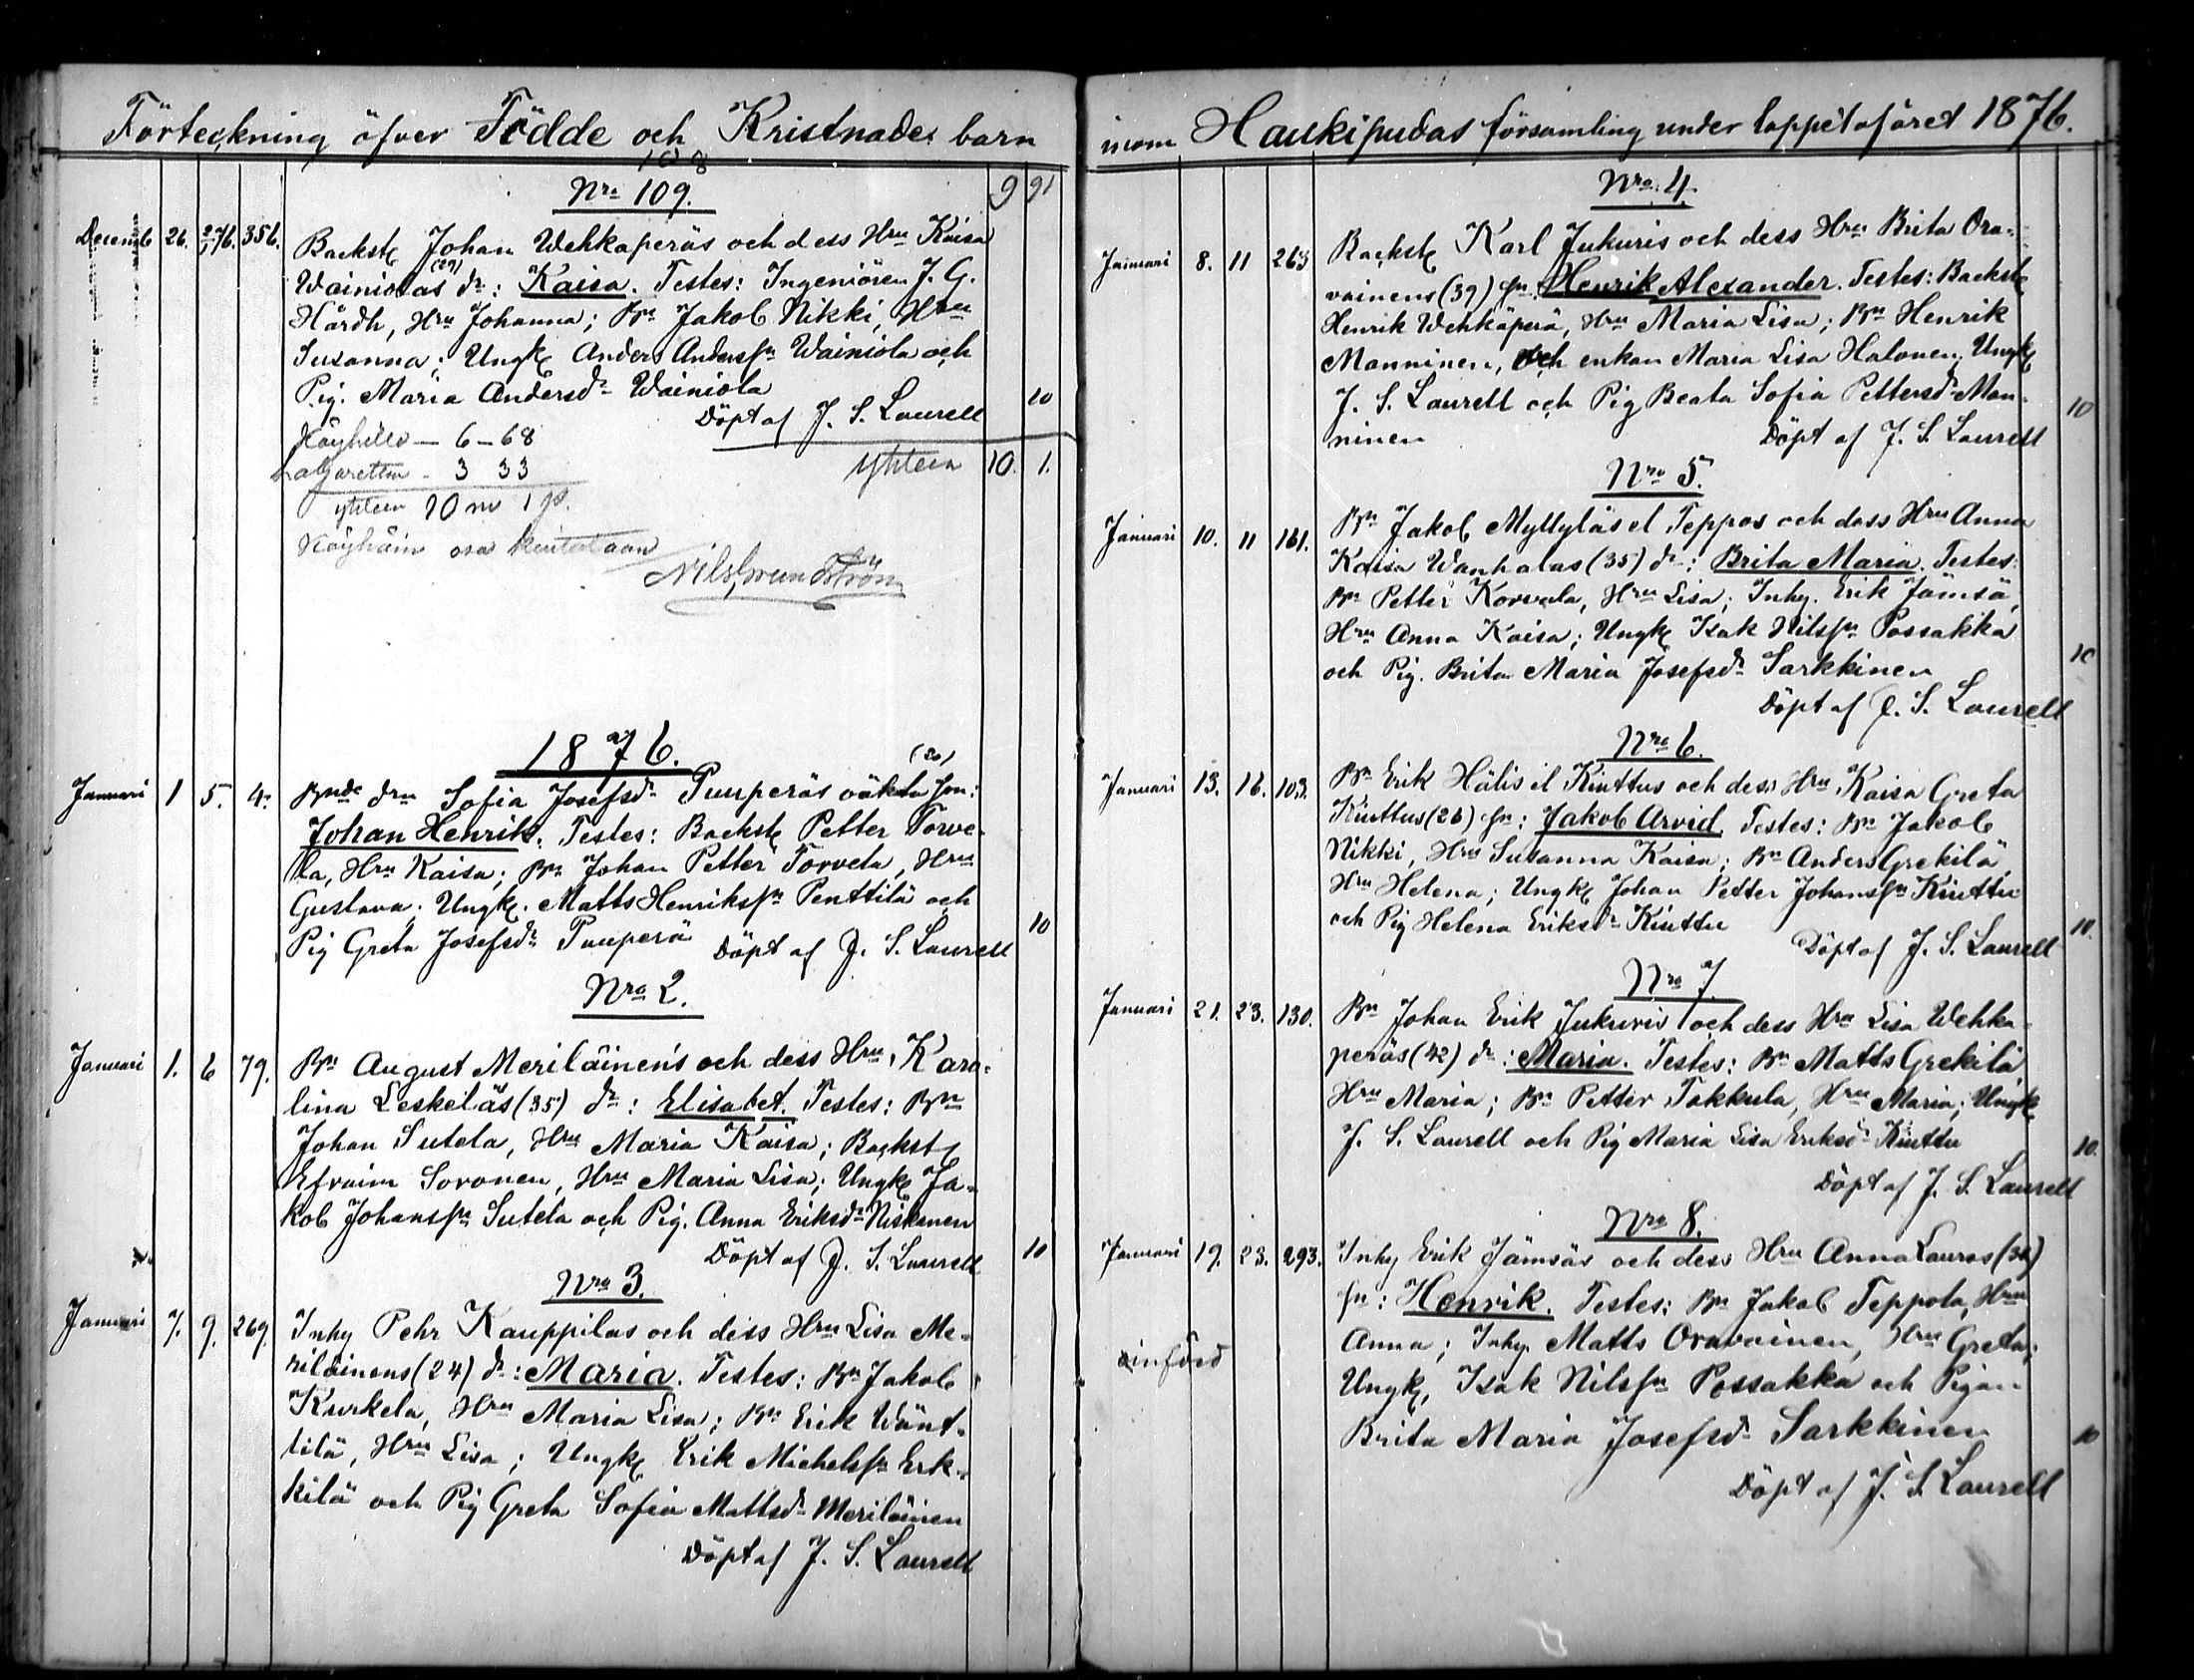 Förteckning öfver Födde och Kristnade barn
108
Nro 109.
9 91
Decemb 26. 2/1 76. 356.
Backst Johan Wehkaperäs och dess Hru Kaisa
(29)
Wainiolas dr: Kaisa. Testes: Ingeniören J. G.
Hårdh, Hru Johanna; Bn Jakob Nikki, Hru
Susanna; Ungk Anders Anderssn Wainiola och
Pig. Maria Andersdr Wainiola
10
Döpt af J. S. Laurell
Köyhille – 6 – 68
3 33
yhteen 10. 1.
yhteen 10 m 1 p.
Köyhäin osa
1876.
(20)
Januari 1 5. 4.
Bnde drn Sofia Josefsdr Puuperäs oäkta son:
Johan Henrik. Testes: Backst Petter Torve-
la, Hru Kaisa; Bn Johan Petter Torvela, Hru
Gustava; Ungk. Matts Henrikssn Penttilä och
Pig Greta Josefsdr Puuperä
10
Döpt af J. S. Laurell
Nro 2.
Januari 1. 6 79.
Bn August Meriläinens och dess Hru Karo-
lina Leskeläs (35) dr: Elisabet. Testes: Bn
Johan Sutela, Hru Maria Kaisa; Backst
Efraim Soronen, Hru Maria Lisa; Ungk Ja-
kob Johanssn Sutela och Pig. Anna Eriksdr Niskanen
Döpt af J. S. Laurell
10
Nro 3.
Januari 7. 9. 269.
Inhy Pehr Kauppilas och dess Hru Lisa Me-
riläinens (24) dr: Maria. Testes: Bn Jakob
Kurkela, Hru Maria Lisa; Bn Erik Wänt-
tilä, Hru Lisa; Ungk Erik Michelssn Erk-
kilä och Pig Greta Sofia Mattsdr Meriläinen
Döpt af J. S. Laurell
inom Haukipudas församling under loppet af året 1876.
Nro 4.
Januari 8. 11 263
Backst Karl Jukuris och dess Hru Brita Ora-
vainens (39) sn: Henrik Alexander. Testes: Backst
Henrik Wehkäperä, Hru Maria Lisa; Bn Henrik
Manninen, och enkan Maria Lisa Halonen; Ungk
J. S. Laurell och Pig Beata Sofia Pettersdr Man-
10
ninen
Döpt af J. S. Laurell
Nro 5.
Januari 10. 11 161.
Bn Jakob Myllyläs el Teppos och dess Hru Anna
Kaisa Wanhalas (35) dr: Brita Maria. Testes:
Bn Petter Korvala, Hru Lisa; Inhy. Erik Jämsä,
Hru Anna Kaisa; Ungk Isak Nilssn Possakka
och Pig. Brita Maria Josefsdr Sarkkinen
10
Döpt af J. S. Laurell
Nro 6.
Januari 13. 16. 103.
Bn Erik Hälis el Kiuttus och dess Hru Kaisa Greta
Kiuttus (26) sn: Jakob Arvid. Testes: Bn Jakob
Nikki, Hru Susanna Kaisa; Bn Anders Grekilä,
Hru Helena; Ungk Johan Petter Johanssn Kiuttu
och Pig Helena Eriksdr Kiuttu
10.
Döpt af J. S. Laurell
Nro 7.
Januari 21. 23. 130.
Bn Johan Erik Jukuris och dess Hru Lisa Wehka-
peräs (42) dr: Maria. Testes: Bn Matts Grekilä
Hru Maria; Bn Petter Takkula, Hru Maria; Ungk
J. S. Laurell och Pig Maria Lisa Eriksdr Kiuttu
10.
Döpt af J. S. Laurell
Nro 8.
Januari 19. 23. 293.
Inhy Erik Jämsäs och dess Hru Anna Lauros (36)
sn: Henrik. Testes: Bn Jakob Teppola, Hru
Anna; Inhy Matts Oravainen, Hru Greta;
införd
Ungk, Isak Nilssn Possakka och Pigan
Brita Maria Josefsdr Sarkkinen
10
Döpt af J. S. Laurell